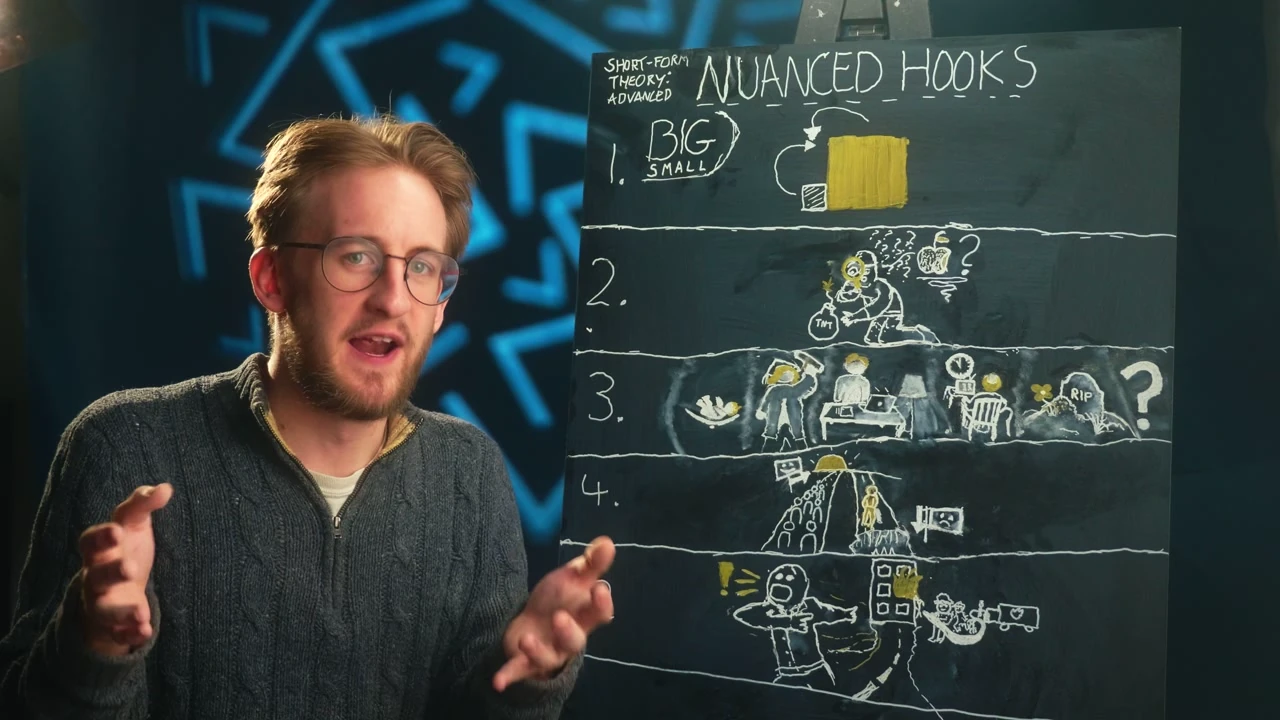 SHORT-FORM
THEORY:
ADVANCED
NUANCED HOOKS
1.
BIG
SMALL
2.
????
?
TNT
3.
RIP
?
4.
!